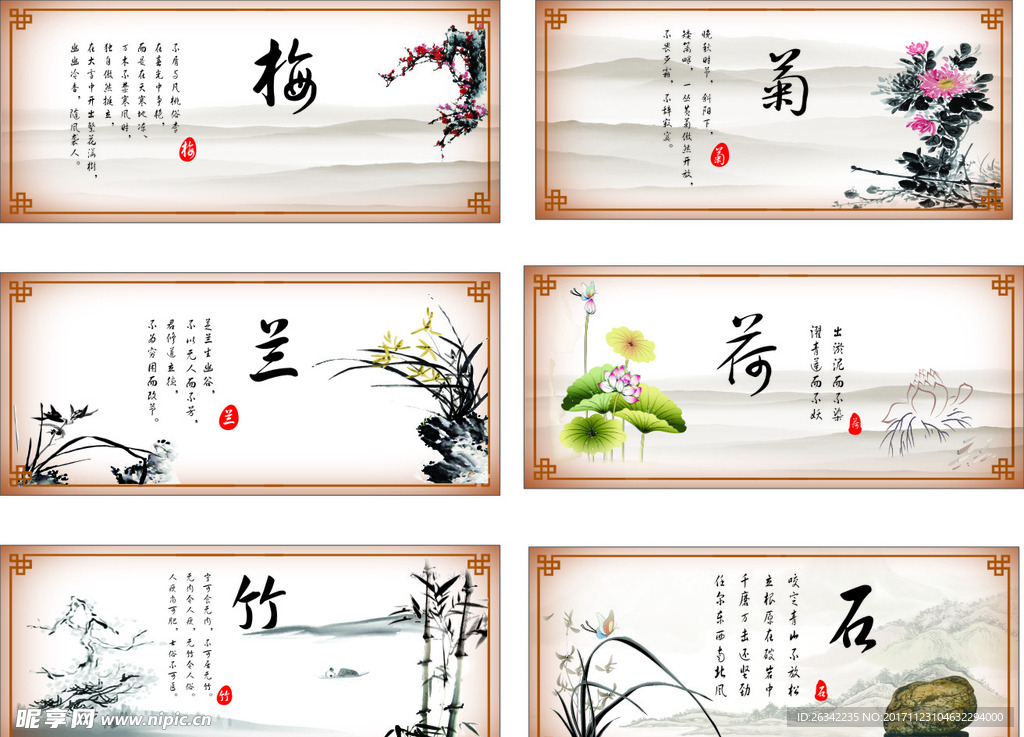 梅
不屑与凡桃俗李
在春光中争艳,
而是在天寒地冻、
万木不禁寒风时,
独自傲然挺立,
在大雪中开出繁花满树,
幽幽冷香,随风袭人。
梅
菊
晚秋时节,斜阳下,
矮篱畔,一丛黄菊傲然开放,
不畏严霜,不辞寂寞。
菊
兰
芝兰生幽谷,
不以无人而不芳,
君修道立德,
不为穷困而改节。
兰
荷
出淤泥而不染
濯青莲而不妖
荷
竹
宁可食无肉,不可居无竹。
无肉令人瘦,无竹令人俗。
人瘦尚可肥,士俗不可医。
竹
石
咬定青山不放松
立根原在破岩中
千磨万击还坚劲
任尔东西南北风
石
昵享网 www.nipic.cn
ID:26342235 NO:20171123104632294000